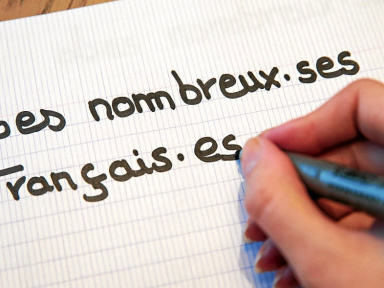 Des nombreux.ses
Français.es